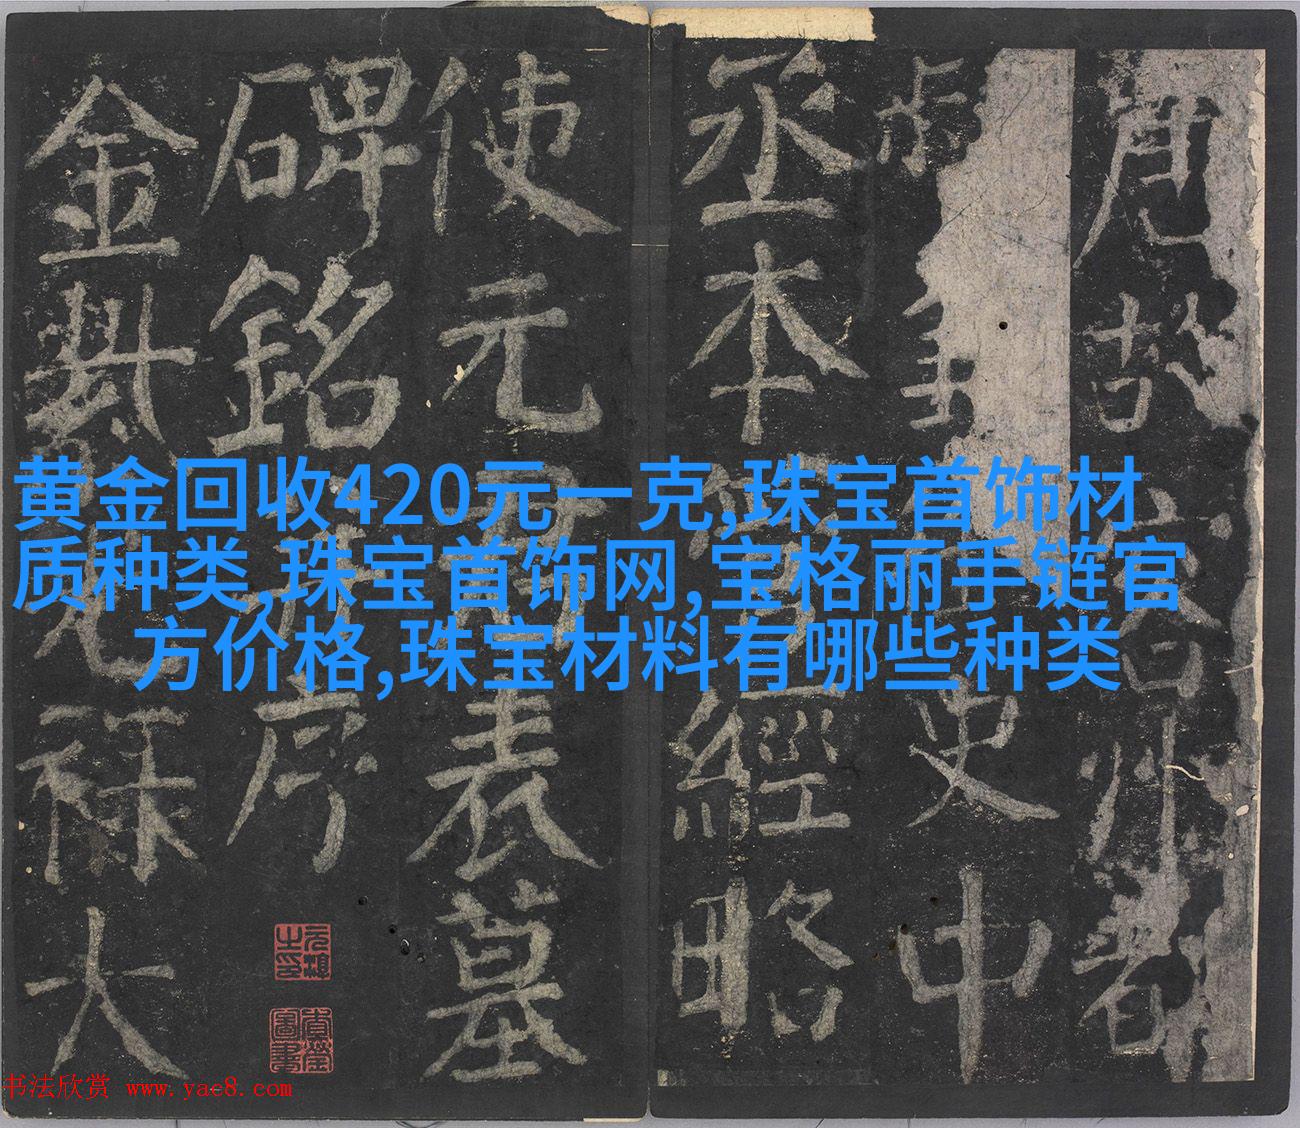 唐故容州都
史中
丞本管經略
使元君表墓
碑銘并序
金紫光祿大
黄金回收420元一克,珠宝首饰材
质种类,珠宝首饰网,宝格丽手链官
方价格,珠宝材料有哪些种类
书法欣赏 www.yac8.com